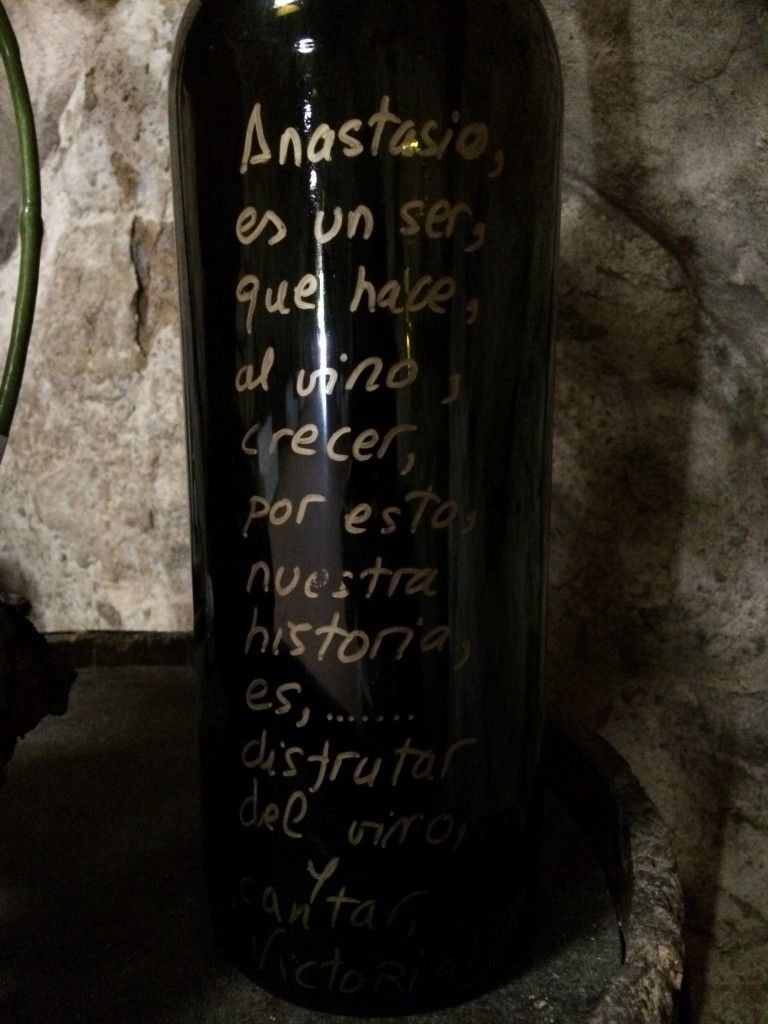 Anastasio,
es un ser,
que hace,
al vino,
crecer,
por esto,
nuestra
historia,
es,.......
disfrutar
del vino,
y
cantar,
Victoria